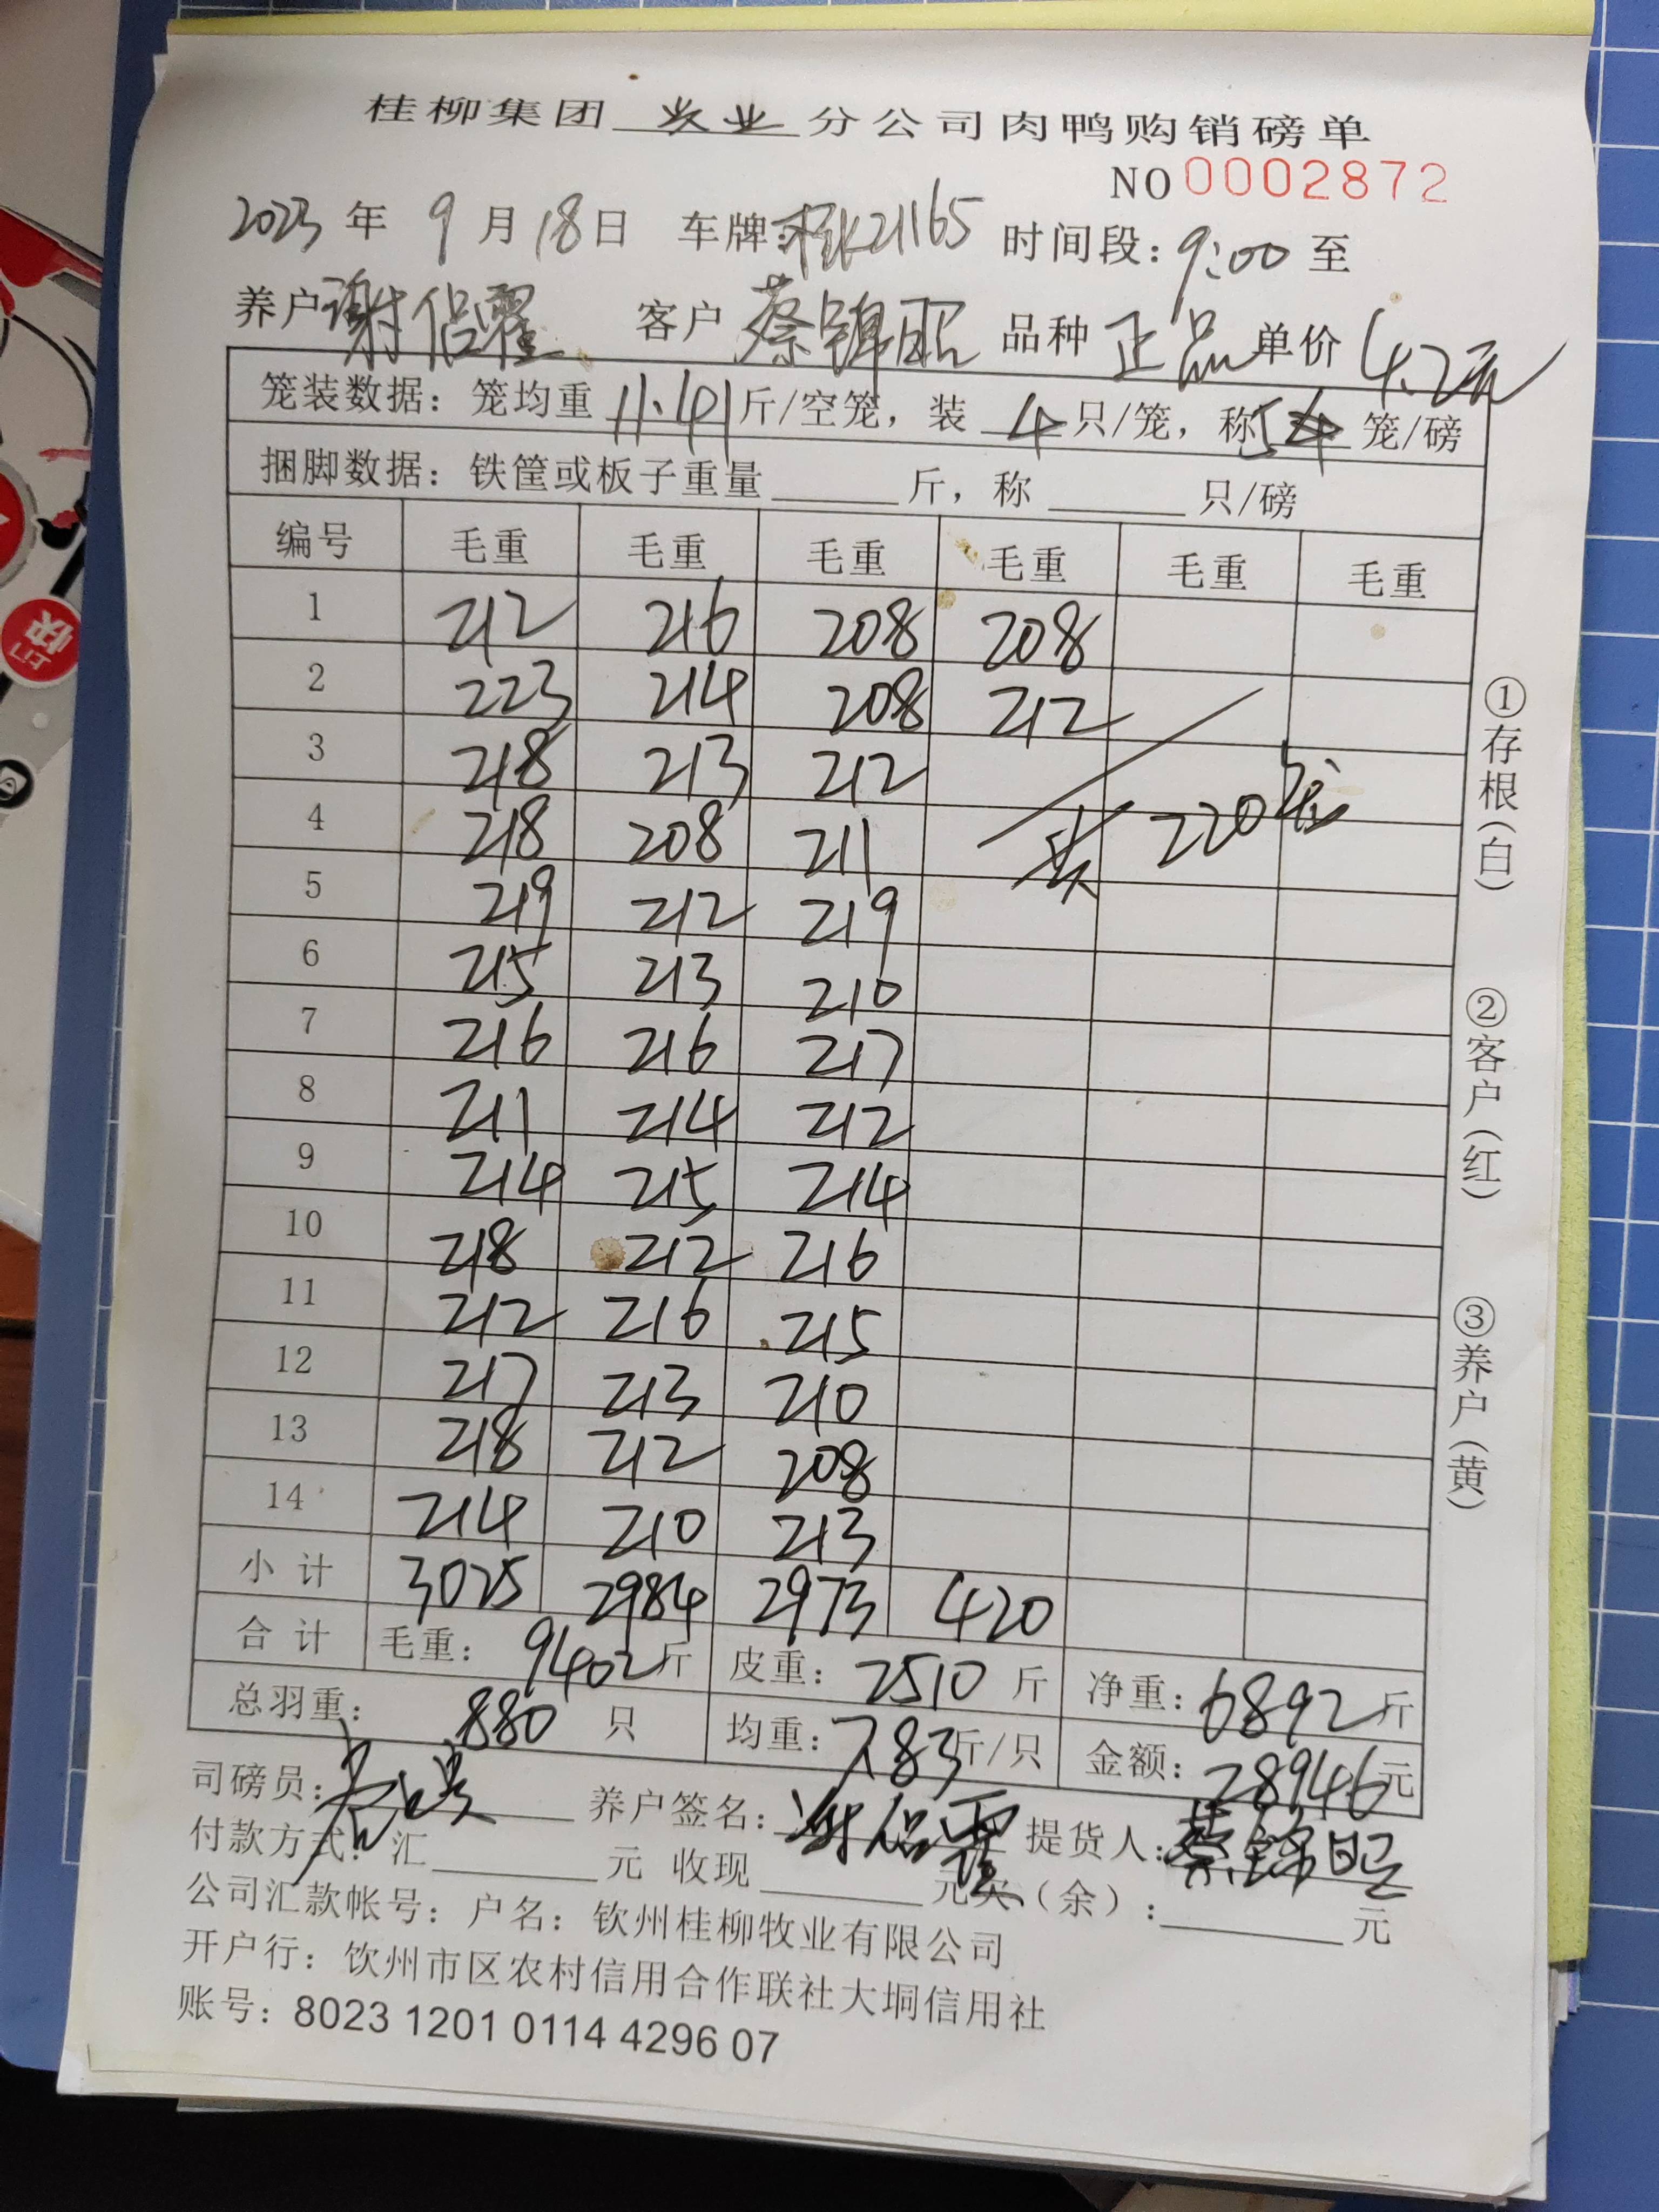 桂柳集团 牧业 分公司肉鸭购销磅单
NO 0002872
2023 年 9 月 18 日 车牌: 21165 时间段: 9:00 至
养户 谢 客户 蔡锦昭 品种 正品 单价 4.2元
笼装数据: 笼均重 11.41 斤/空笼, 装 4 只/笼, 称 5 笼/磅
捆脚数据: 铁筐或板子重量 斤, 称 只/磅
编号 毛重 毛重 毛重 毛重 毛重 毛重
1 212 216 208 208
2 223 214 208 212
3 218 213 212
4 218 208 211 共 220笼
5 219 212 219
6 215 213 210
7 216 216 217
8 211 214 212
9 214 215 214
10 218 212 216
11 212 216 215
12 217 213 210
13 218 212 208
14 214 210 213
小计 3025 2984 2973 420
合计 毛重: 9402 斤 皮重: 2510 斤 净重: 6892 斤
总羽重: 880 只 均重: 7.83 斤/只 金额: 28946 元
司磅员: 养户签名: 谢 提货人: 蔡锦昭
付款方式: 汇 元 收现 元 欠(余): 元
公司汇款帐号: 户名: 钦州桂柳牧业有限公司
开户行: 钦州市区农村信用合作联社大垌信用社
账号: 8023 1201 0114 4296 07
①存根(白)
②客户(红)
③养户(黄)
快